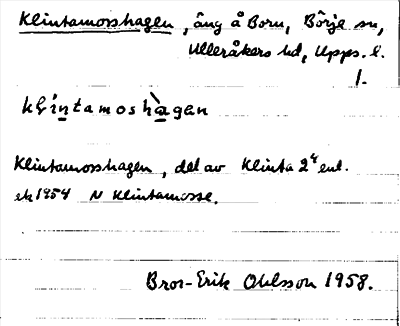 Klintamosshagen, äng å Born, Börje sn,
Ulleråkers hd, Upps. l.
1.
klintamoshàgan
Klintamosshagen, del av Klinta 2⁴ enl.
ek 1954 N Klintamosse.
Bror-Erik Ohlsson 1958.